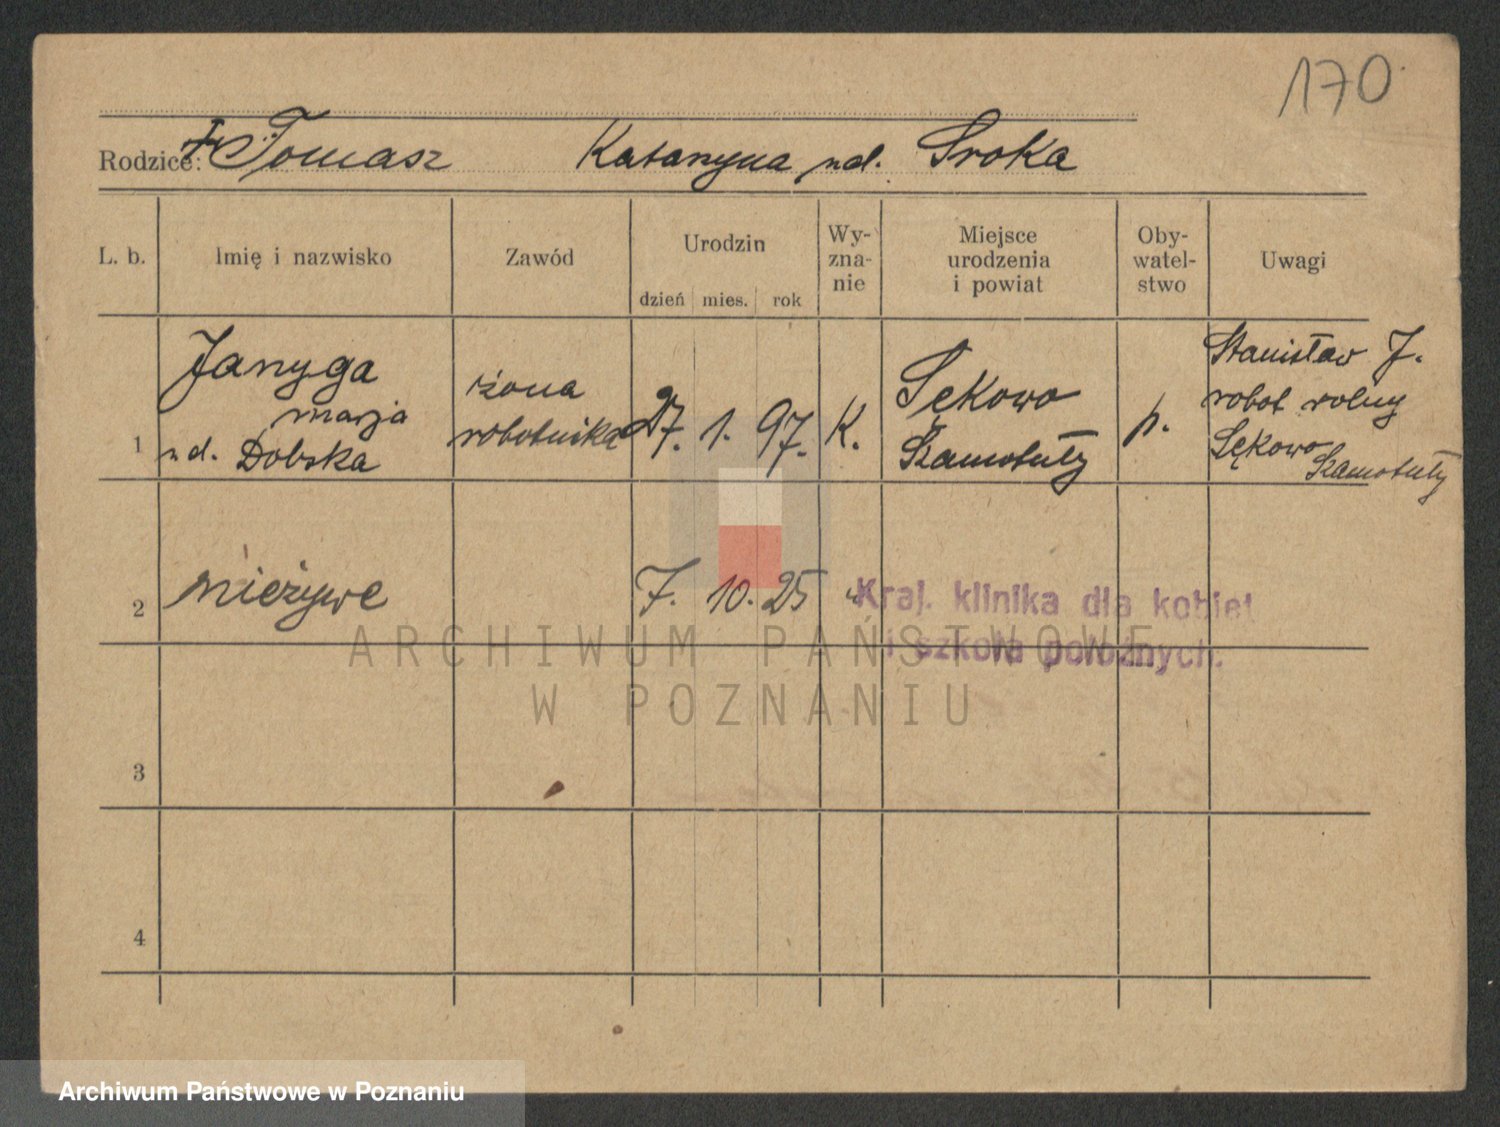 170
Rodzice: Tomasz Katarzyna zd. Sroka
L. b. Imię i nazwisko Zawód Urodzin dzień mies. rok Wy-zna-nie Miejsce urodzenia i powiat Oby-watel-stwo Uwagi
1 Jaryga marja zd. Dolska żona robotnika 27. 1. 97. K. Sękowo Szamotuły p. Stanisław J. robot rolny Sękowo Szamotuły
2 nieżywe 7. 10. 25 " Kraj. klinika dla kobiet
i szkoła położnych.
3
4
ARCHIWUM PAŃSTWOWE
W POZNANIU
Archiwum Państwowe w Poznaniu